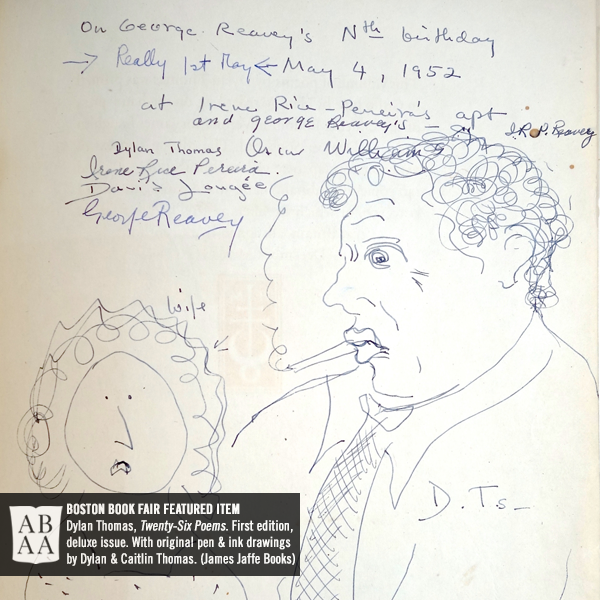 On George Reavey's Nth birthday
→ Really 1st May ← May 4, 1952
at Irene Rice-Pereira's apt
and george Reavey's —
I.R.P. Reavey
Dylan Thomas Oscar Williams
Irene Rice Pereira.
David Lougée
George Reavey
wife
D.Ts—
ABAA
BOSTON BOOK FAIR FEATURED ITEM
Dylan Thomas, Twenty-Six Poems. First edition,
deluxe issue. With original pen & ink drawings
by Dylan & Caitlin Thomas. (James Jaffe Books)